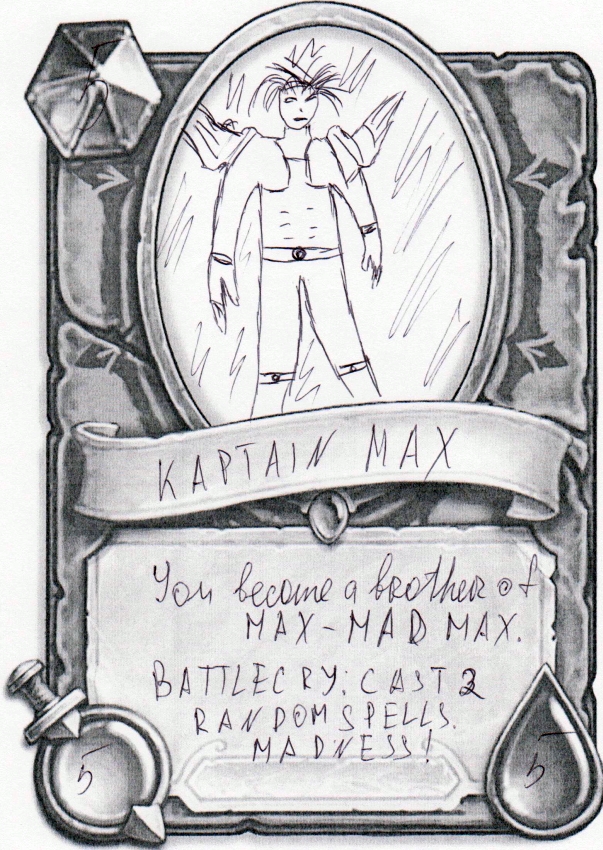 5
KAPTAIN MAX
You become a brother of
MAX-MAD MAX.
BATTLECRY: CAST 2
RANDOM SPELLS.
MADNESS!
5
5